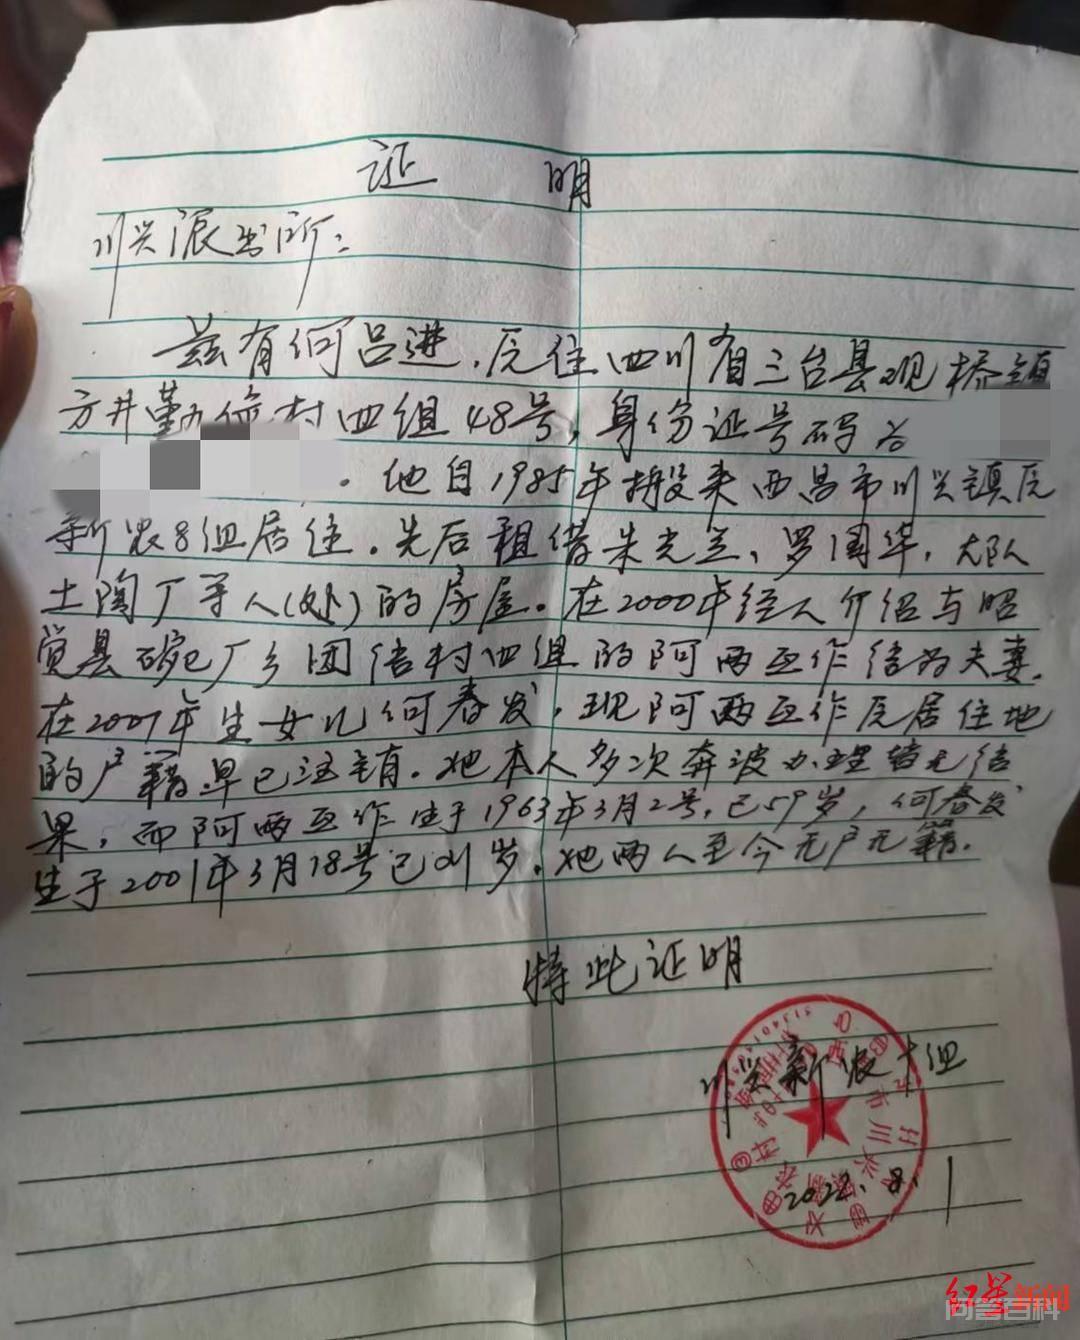 证 明
川兴派出所：
兹有何吕进，原住四川省三台县观桥镇
方井勤俭村四组48号，身份证号码为
。他自1985年搬来西昌市川兴镇原
新农8组居住。先后租借朱光兰、罗国华，大队
土陶厂等人(处)的房屋。在2000年经人介绍与昭
觉县碗厂乡团结村四组的阿两亚作结为夫妻。
在2001年生女儿何春发，现阿两亚作原居住地
的户籍早已注销。她本人多次奔波办理皆无结
果，而阿两亚作生于1963年3月2号，已59岁，何春发
生于2001年3月18号已21岁。她两人至今无户无籍。
特此证明
川兴新农十组
2022.8.1
红星新闻
问答百科